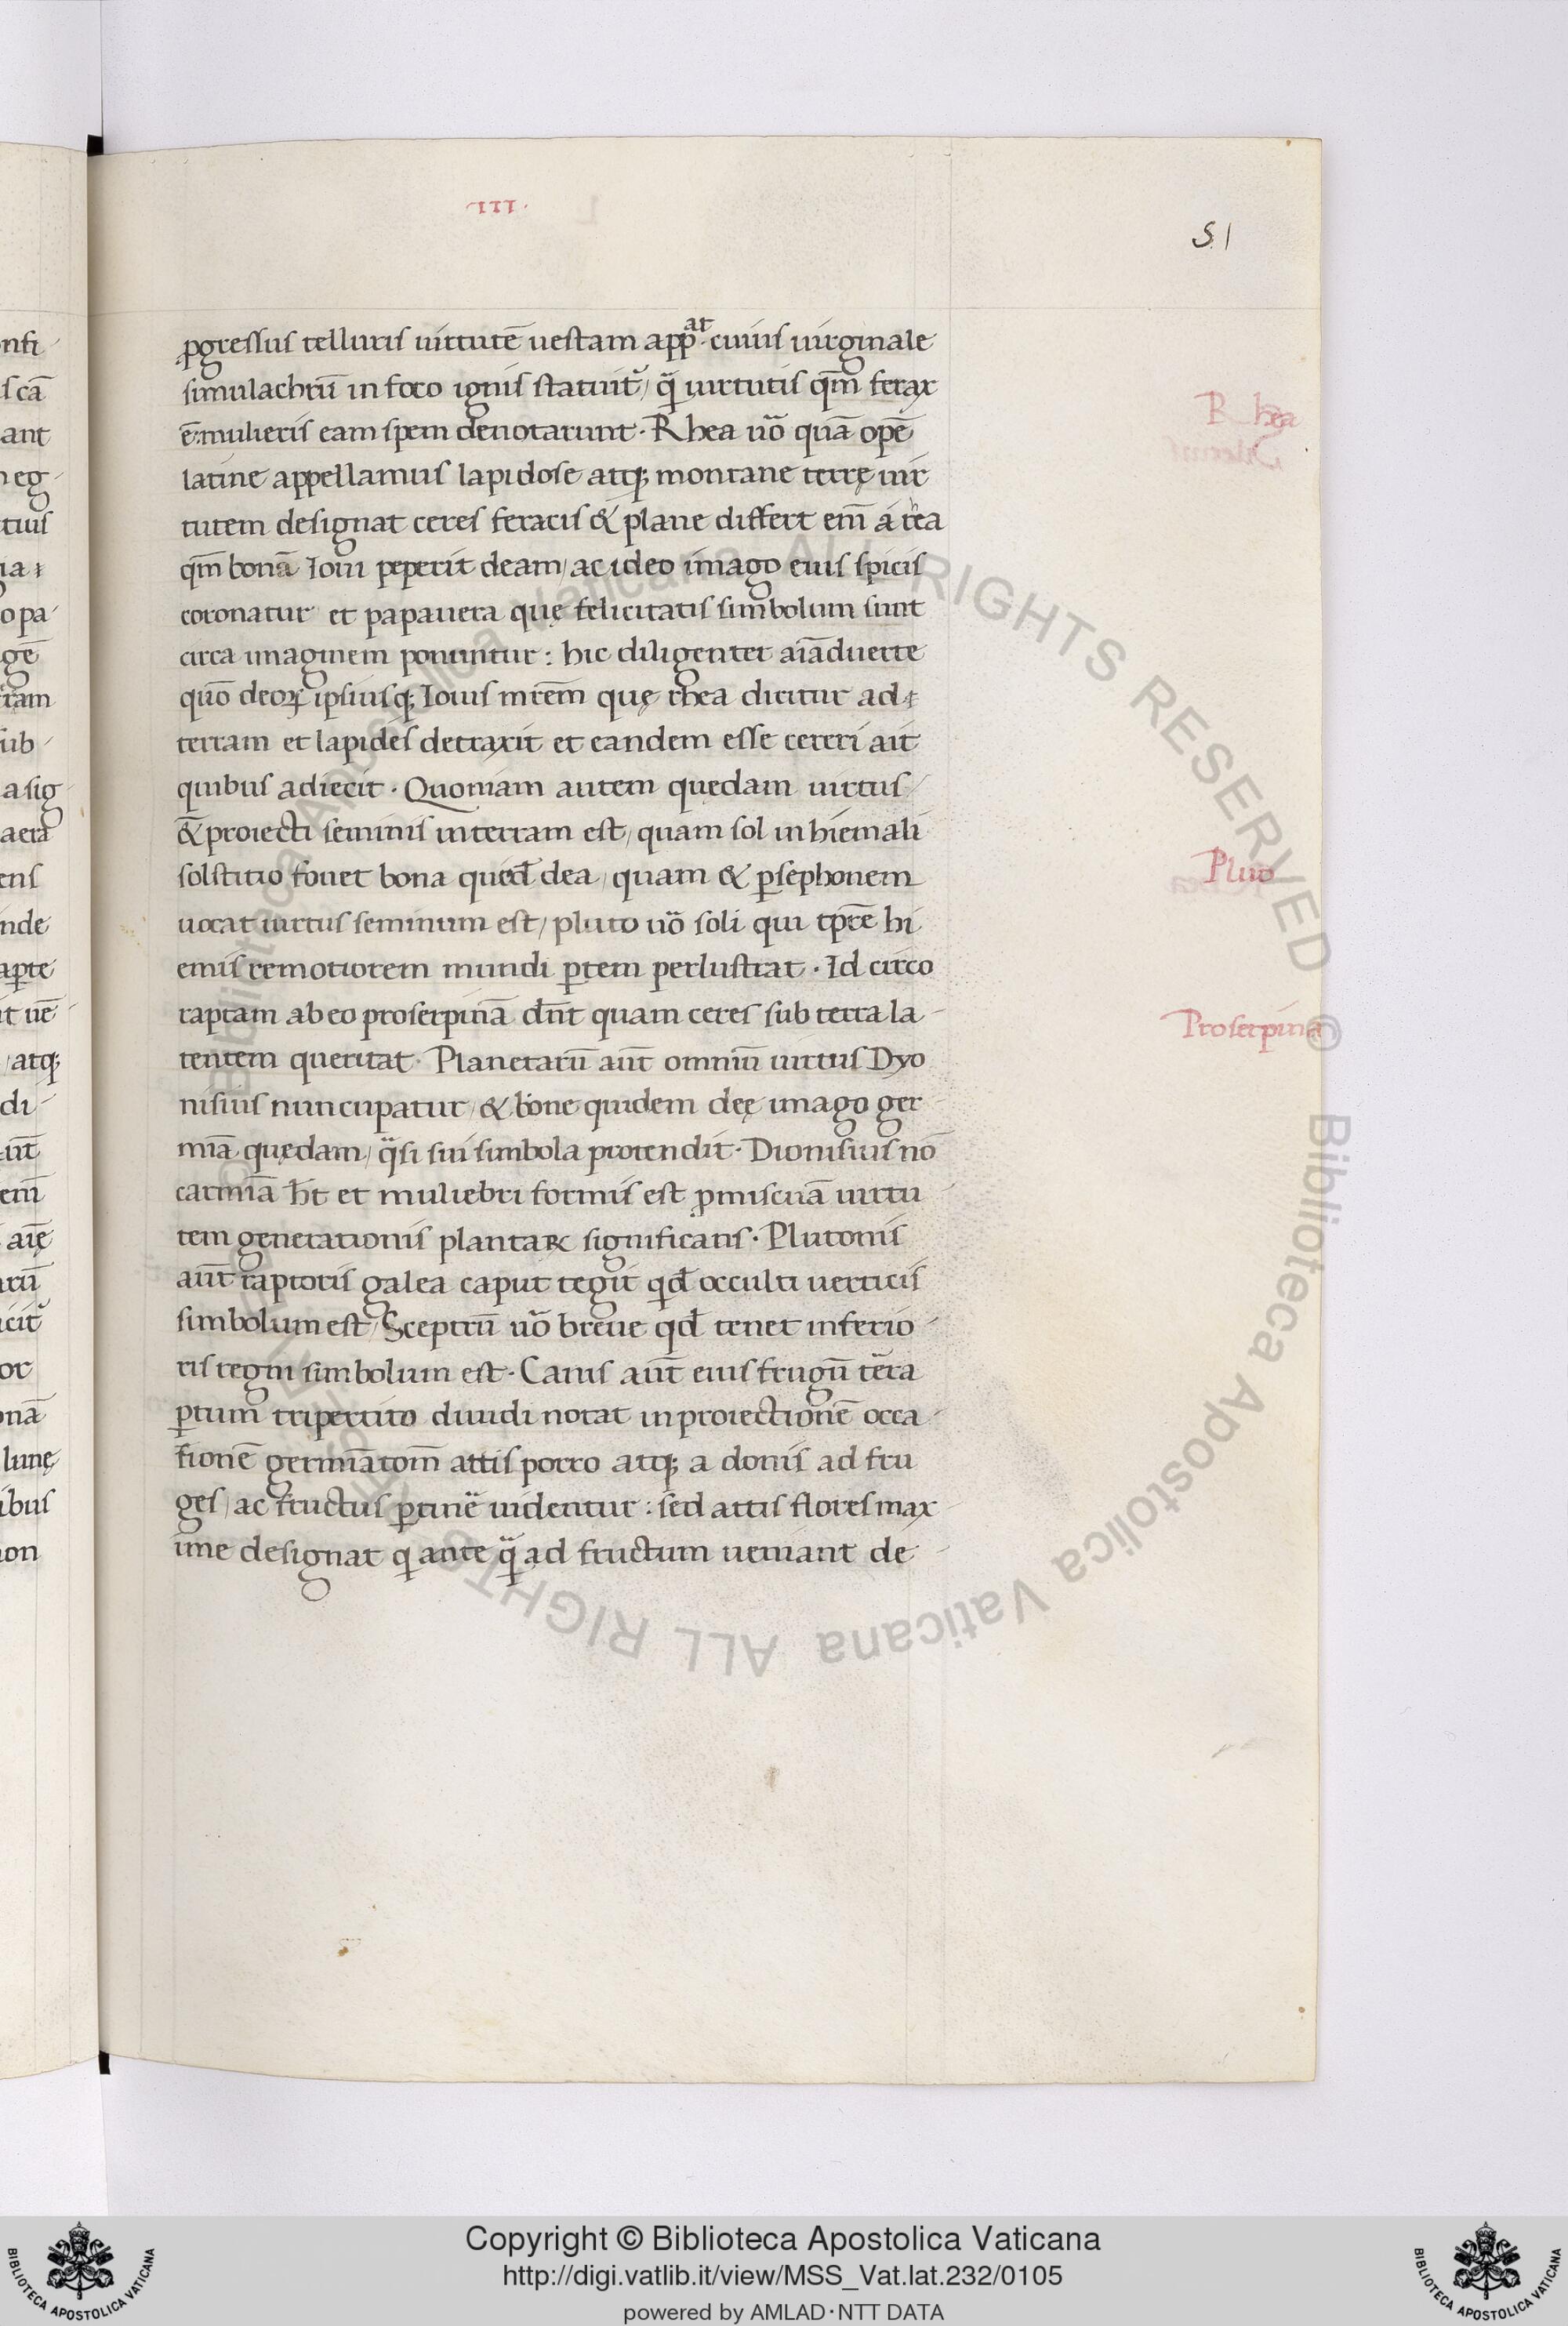 ·III·
51
ꝓgressus telluris uirtutē uestam app^at· cuius uirginale
simulachrū in foco ignis statuit᷑/ q̃ uirtutis qm̄ ferax
ē: mulieris eam spem denotarunt· Rhea uõ quā opē
latine appellamus lapidose atq; montane terrę uir
tutem designat ceres feracis & plane differt em̄ á rea
qm̄ bonā Ioui peperit deam/ ac ideo imago eius spicis
coronatur et papauera quę felicitatis simbolum sunt
circa imaginem ponuntur: hic diligenter aīaduerte
quō deoꝝ ipsiusq; Iouis mr̄em quę rhea dicitur ad
terram et lapides detraxit et eandem esse cereri ait
quibus adiecit· Quoniam autem quedam uirtus
& proiecti seminis in terram est/ quam sol in hiemali
solstitio fouet bona qued̄ dea/ quam & ꝑsephonem
uocat uirtus seminum est/ pluto uõ soli qui tp̄re hi
emis remotiorem mundi ꝑtem perlustrat· Id circo
raptam ab eo proserpinā dn̄t quam ceres sub terra la
tentem queritat· Planetarū aūt omniū uirtus Dyo
nisius nuncupatur/ & bone quidem deę imago ger
mīa quędam/ q̃si sui simbola protendit· Dionisius nō
carmīa h̄t et muliebri formis est ꝓmiscuā uirtu
tem generationis plantaꝝ significans· Plutonis
aūt raptoris galea caput tegit qd̄ occulti uerticis
simbolum est/ Sceptrū uõ breue qd̄ tenet inferio
ris regni simbolum est· Canis aūt eius frugū tẽra
ꝑtum tripertito diuidi notat in proiectionē occa
tionē germīatom̄ attis porro atq; a donis ad fru
ges/ ac fructus ꝑtinẽ uidentur: sed attis flores max
ime designat q ante q̃ ad fructum ueniant de
Rhea
Pluto
Proserpina
nfi
s cā
ant
eg
tius
o pa
gē
ram
ub
a sig
aera
ens
nde
aꝑte
t uē
/atq;
di
ūt
em̄
aīę
rū
icit᷑
or
onā
lunę
ibus
on
© Biblioteca Apostolica Vaticana ALL RIGHTS RESERVED
Copyright © Biblioteca Apostolica Vaticana
http://digi.vatlib.it/view/MSS_Vat.lat.232/0105
powered by AMLAD·NTT DATA
BIBLIOTECA APOSTOLICA VATICANA
BIBLIOTECA APOSTOLICA VATICANA